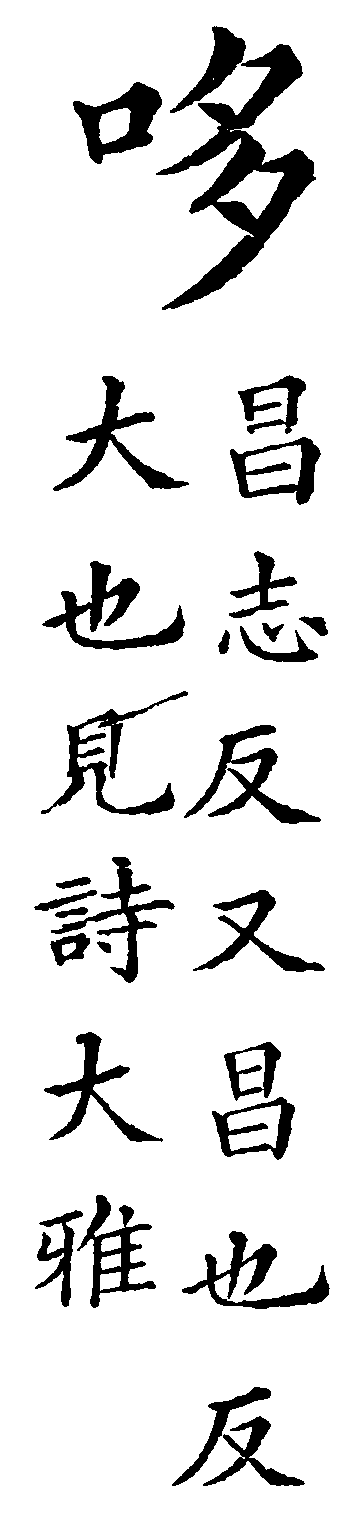 哆
昌志反又昌也反
大也見詩大雅